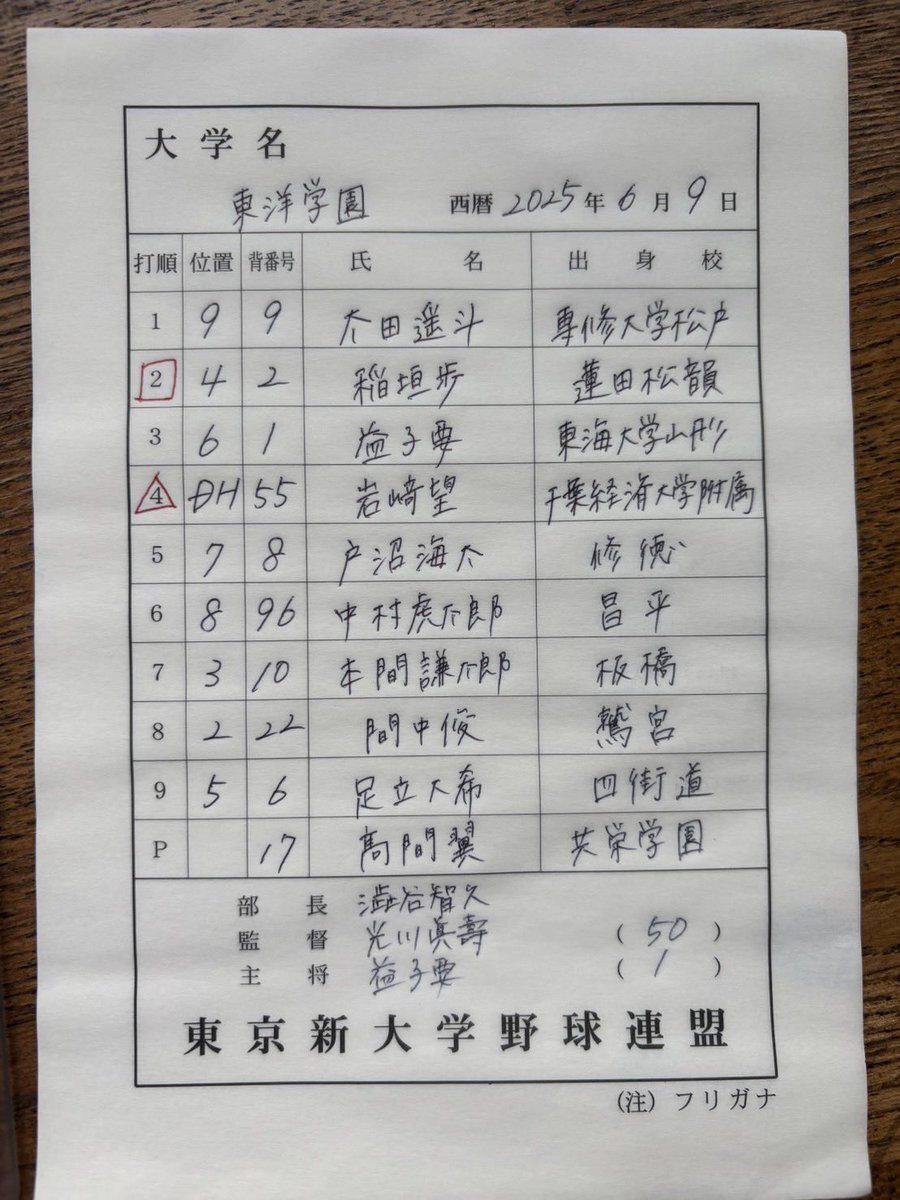 大学名
東洋学園 西暦 2025年 6月 9日
打順 位置 背番号 氏名 出身校
1 9 9 太田遥斗 専修大学松戸
2 4 2 稲垣歩 蓮田松韻
3 6 1 益子要 東海大学山形
4 DH 55 岩﨑望 千葉経済大学附属
5 7 8 戸沼海太 修徳
6 8 96 中村虎太郎 昌平
7 3 10 本間謙太郎 板橋
8 2 22 間中俊 鷲宮
9 5 6 足立大希 四街道
P 17 髙間翼 共栄学園
部長 澁谷智久
監督 光川眞壽 (50)
主将 益子要 (1)
東京新大学野球連盟
(注) フリガナ